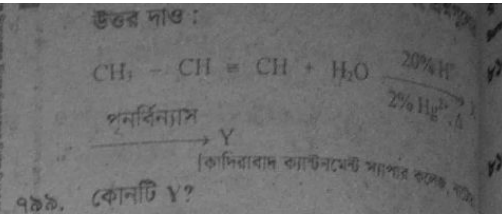 উত্তর দাও :
CH₃ - CH = CH + H₂O 20% H⁺
2% Hg²⁺, Δ X
পুনর্বিন্যাস
Y
[কাদিরাবাদ ক্যান্টনমেন্ট স্যাপার কলেজ,
৭৯৯. কোনটি Y?